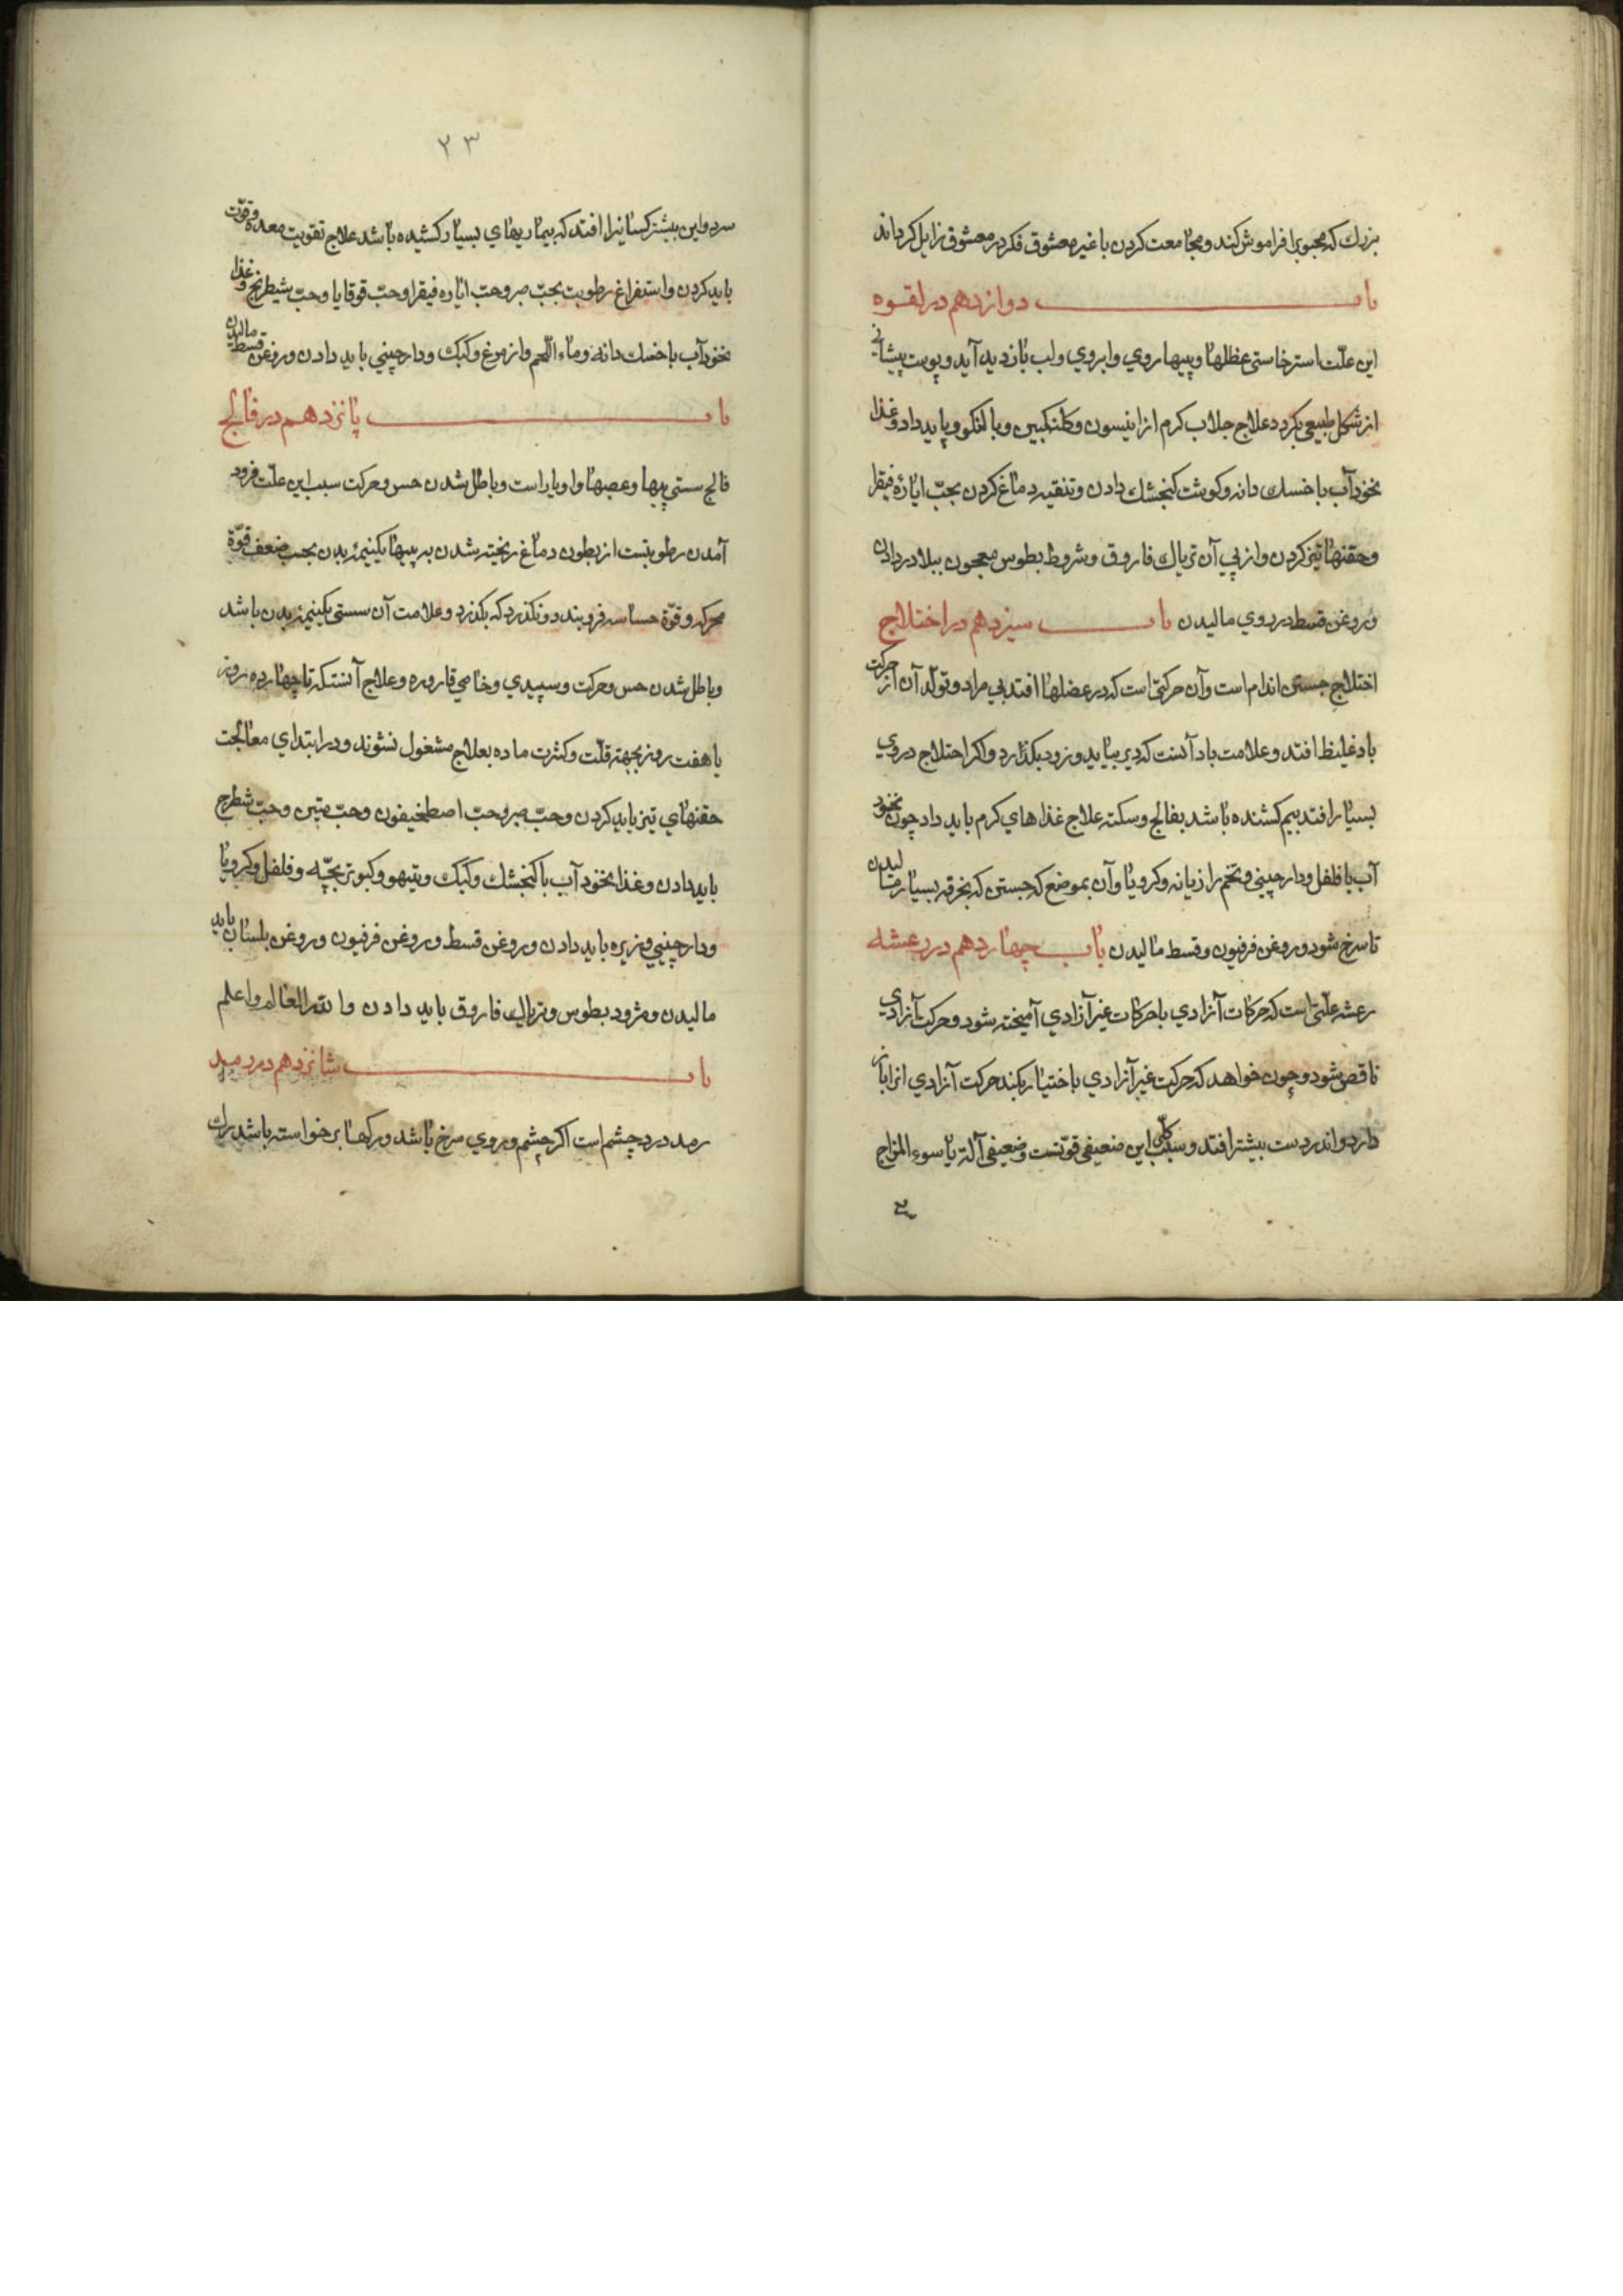 بزرك كه محبوبرا فراموش كند و مجامعت كردن با غير معشوق فكر در معشوق زايل كرداند
باب دوازدهم در لقوه
اين علّت استرخاستى عظلها و پيها روي و ابروي و لب باز ديد آيد و پوست پيشانى
از شكل طبيعى بكردد علاج جلاب كرم از انيسون و كلنكبين و بالنكو و بايد داد و غذا
نخودآب با خسك دانه و كوشت كنجشك دادن و تنقيه دماغ كردن بحبّ اياره فيقرا
و حقنهاتيز كردن و از پي آن ترياك فاروق و شروط بطوس معجون ببلادر دادن
و روغن قسط در روي ماليدن باب سيزدهم در اختلاج
اختلاج جستن اندام است و آن حركتى است كه در عضلها افتد بي مراد و تولّد آن از حركت
باد غليظ افتد و علامت باد آنست كه دير بيايد و زود بكذارد و اكر اختلاج در روي
بسيار افتد بيم كشنده باشد بفالج و سكته علاج غذاهاي كرم بايد داد چون نخود
آب با فلفل و دارچيني و تخم رازيانه و كرويا و آن بموضع كه جستن كه بخرقه بسيار ماليدن
تا سرخ شود و روغن فرفيون و قسط ماليدن باب چهاردهم در رعشه
رعشه علّتى است كه حركات آزادي با حركات غير آزادي آميخته شود و حركت آزادي
ناقص شود و چون خواهد كه حركت غير آزادي باختيار بكند حركت آزادي انرا باز
دارد و اندر دست بيشتر افتد و سبب كلّى اين ضعيفى قوّتست و ضعيفى آلة يا سوء المزاج
٢٣
سرد و اين بيشتر كسانيرا افتد كه بيماريهاي بسيار كشيده باشد علاج تقويت معده و قوّت
بايد كردن و استفراغ رطوبت بحبّ صبر و حبّ اياره فيقرا و حبّ قوقايا و حبّ شيطرنج و غذا
نخودآب با خسك دانه و ماء اللّحم و از مرغ و كبك و دارچيني بايد دادن و روغن قسط ماليدن
باب پانزدهم در فالج
فالج سستى پيها و عصبها و اوبار است و باطل شدن حس و حركت سبب اين علّت فرود
آمدن رطوبتست از بطون دماغ ريخته شدن بر پيها يكنيمه بدن بحسب ضعف قوّة
محركه و قوّة حساسه فرو بندد و نكذرد كه بكذرد و علامت آن سستى يكنيمه بدن باشد
و باطل شدن حس و حركت و سپيدي و خامي قاروره و علاج آنستكه تا چهارده روز
يا هفت روز بجهته قلّت و كثرت ماده بعلاج مشغول نشوند و در ابتداي معالجت
حقنهاي تيز بايد كردن و حبّ صبر و حبّ اصطمخيفون و حبّ منتن و حبّ شطرج
بايد دادن و غذا نخود آب با كنجشك و كبك و تيهو و كبوتر بچّه و فلفل و كرويا
و دارچيني و زيره بايد دادن و روغن قسط و روغن فرفيون و روغن بلسان بايد
ماليدن و مثرود بطوس و ترياك فاروق بايد دادن و الله العالم و اعلم
باب شانزدهم در رمد
رمد درد چشم است اكر چشم و روي سرخ باشد و ركها بر خواسته باشد رك